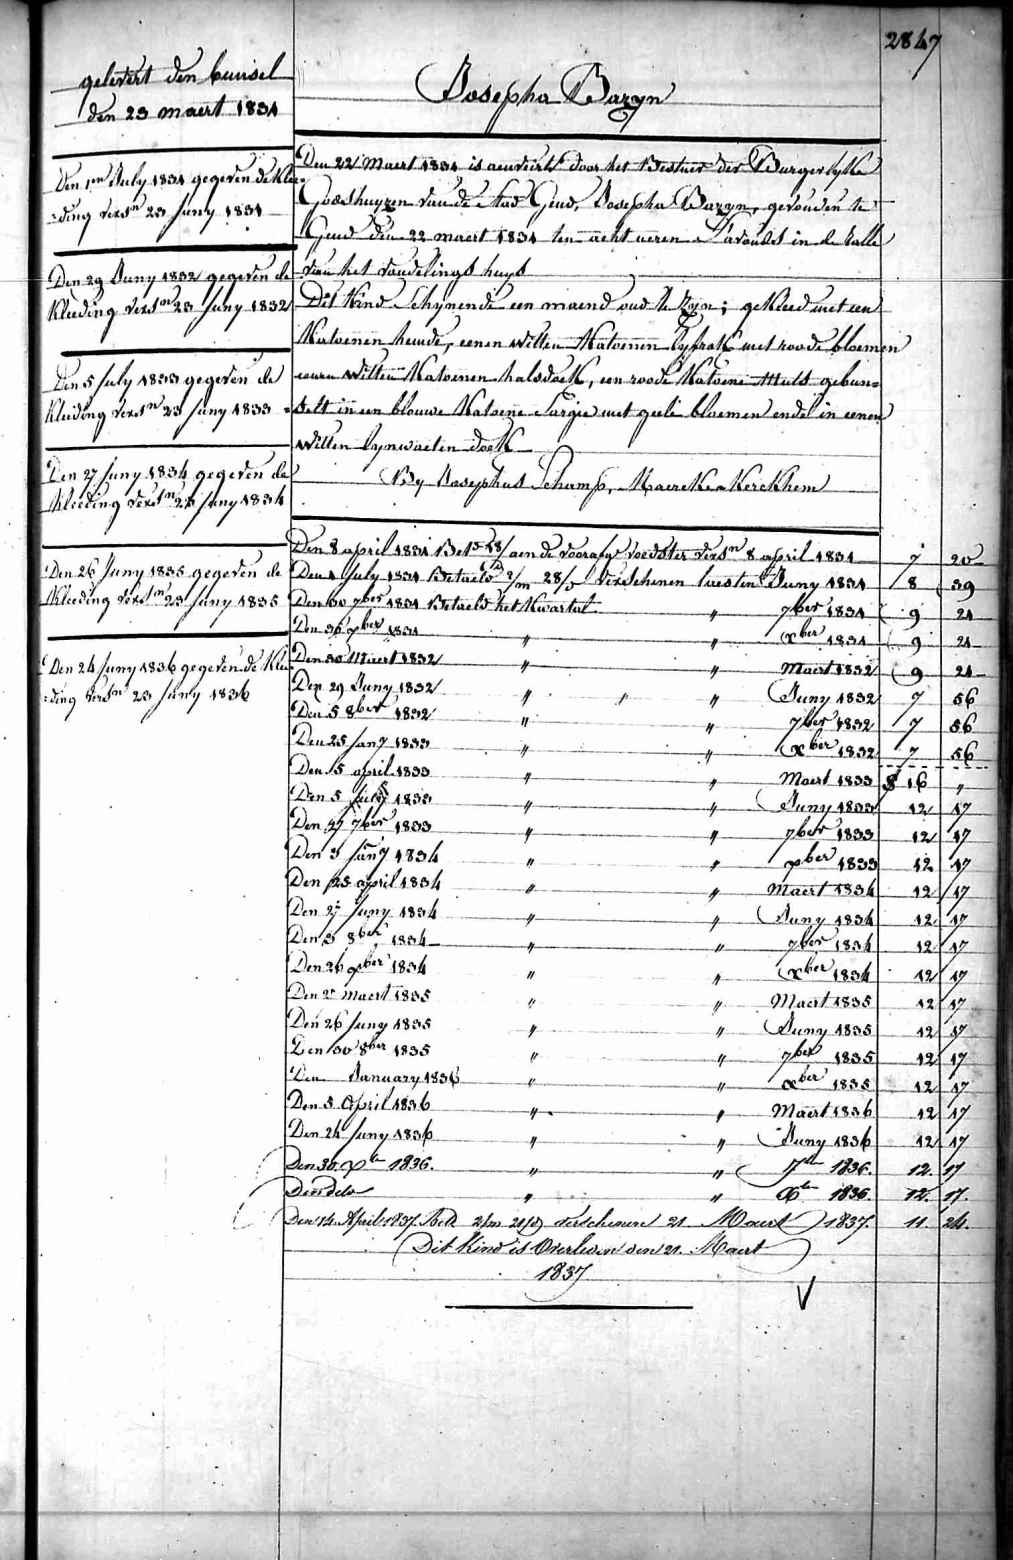 2847
gelevert den bunsel
den 23 maert 1831
Josepha Bazyn
Den 1en July 1831 gegeven de Klee=
=ding versn 23 Juny 1831
Den 29 Juny 1832 gegeven de
Kleeding versn 23 Juny 1832
Den 5 July 1833 gegeven de
Kleeding versn 23 Juny 1833
Den 27 Juny 1834 gegeven de
Kleeding versn 23 Juny 1834
Den 26 Juny 1835 gegeven de
Kleeding versn 23 Juny 1835
Den 24 Juny 1836 gegeven de Klee
=ding versn 23 Juny 1836
Den 22 Maert 1831 is aenveirdt door het Bestuer der Burgerlyke
Godshuyzen van de stad Gend, Josepha Bazyn, gevonden te
Gend den 22 maert 1831 ten acht ueren s'avonds in de Ralle
van het vondelings huys
Dit Kind schynende een maend oud te Zyn; gekleed met een
Katoenen hemde, eenen witten Katoenen lyfrok met roode bloemen
eenen witten Katoenen halsdoek, een roode Katoene Muts gebun=
delt in een blouwe Katoene Sargie met geele bloemen ende in eenen
witten lynwaeten doek
By Josephus Schamp, Maercke Kerckhem
Den 8 april 1831 Bet 18/ aen de voorafge voedster versn 8 april 1831 7 20
Den 1 July 1831 Betaeld 2/m 28/ verschenen Juny 1831 8 39
Den 30 7ber 1831 Betaeld het Kwartal " 7ber 1831 9 24
Den 36 xber 1831 " " xber 1831 9 24
Den 30 Maert 1832 " " Maert 1832 9 24
Den 29 Juny 1832 " " " Juny 1832 7 56
Den 5 8ber 1832 " " 7ber 1832 7 56
Den 25 Jany 1833 " " xber 1832 7 56
Den 5 april 1833 " " Maert 1833 16 "
Den 5 July 1833 " " Juny 1833 12 17
Den 27 7ber 1833 " " 7ber 1833 12 17
Den 3 Jany 1834 " " xber 1833 12 17
Den 25 april 1834 " " Maert 1834 12 17
Den 27 Juny 1834 " " Juny 1834 12 17
Den 3 8ber 1834 " " 7ber 1834 12 17
Den 26 xber 1834 " " xber 1834 12 17
Den 27 maert 1835 " " Maert 1835 12 17
Den 26 Juny 1835 " " Juny 1835 12 17
Den 30 8ber 1835 " " 7ber 1835 12 17
Den January 1836 " " xber 1835 12 17
Den 5 April 1836 " " Maert 1836 12 17
Den 24 Juny 1836 " " Juny 1836 12 17
Den 30. xbr 1836. " " 7br 1836. 12. 17
Den dito " " Xbr 1836. 12. 17.
Den 14. April 1837. Betd 2/m 21/d verschenen 21. Maert 1837. 11. 24.
Dit Kind is Overleden den 21. Maert
1837
V